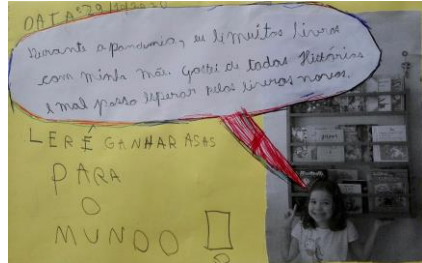 DATA: 29/11/2020
Durante a pandemia, eu li muitos livros
com minha mãe. Gostei de todas Histórias
e mal posso esperar pelos livros novos.
LER É GANHAR ASAS
PARA
O
MUNDO